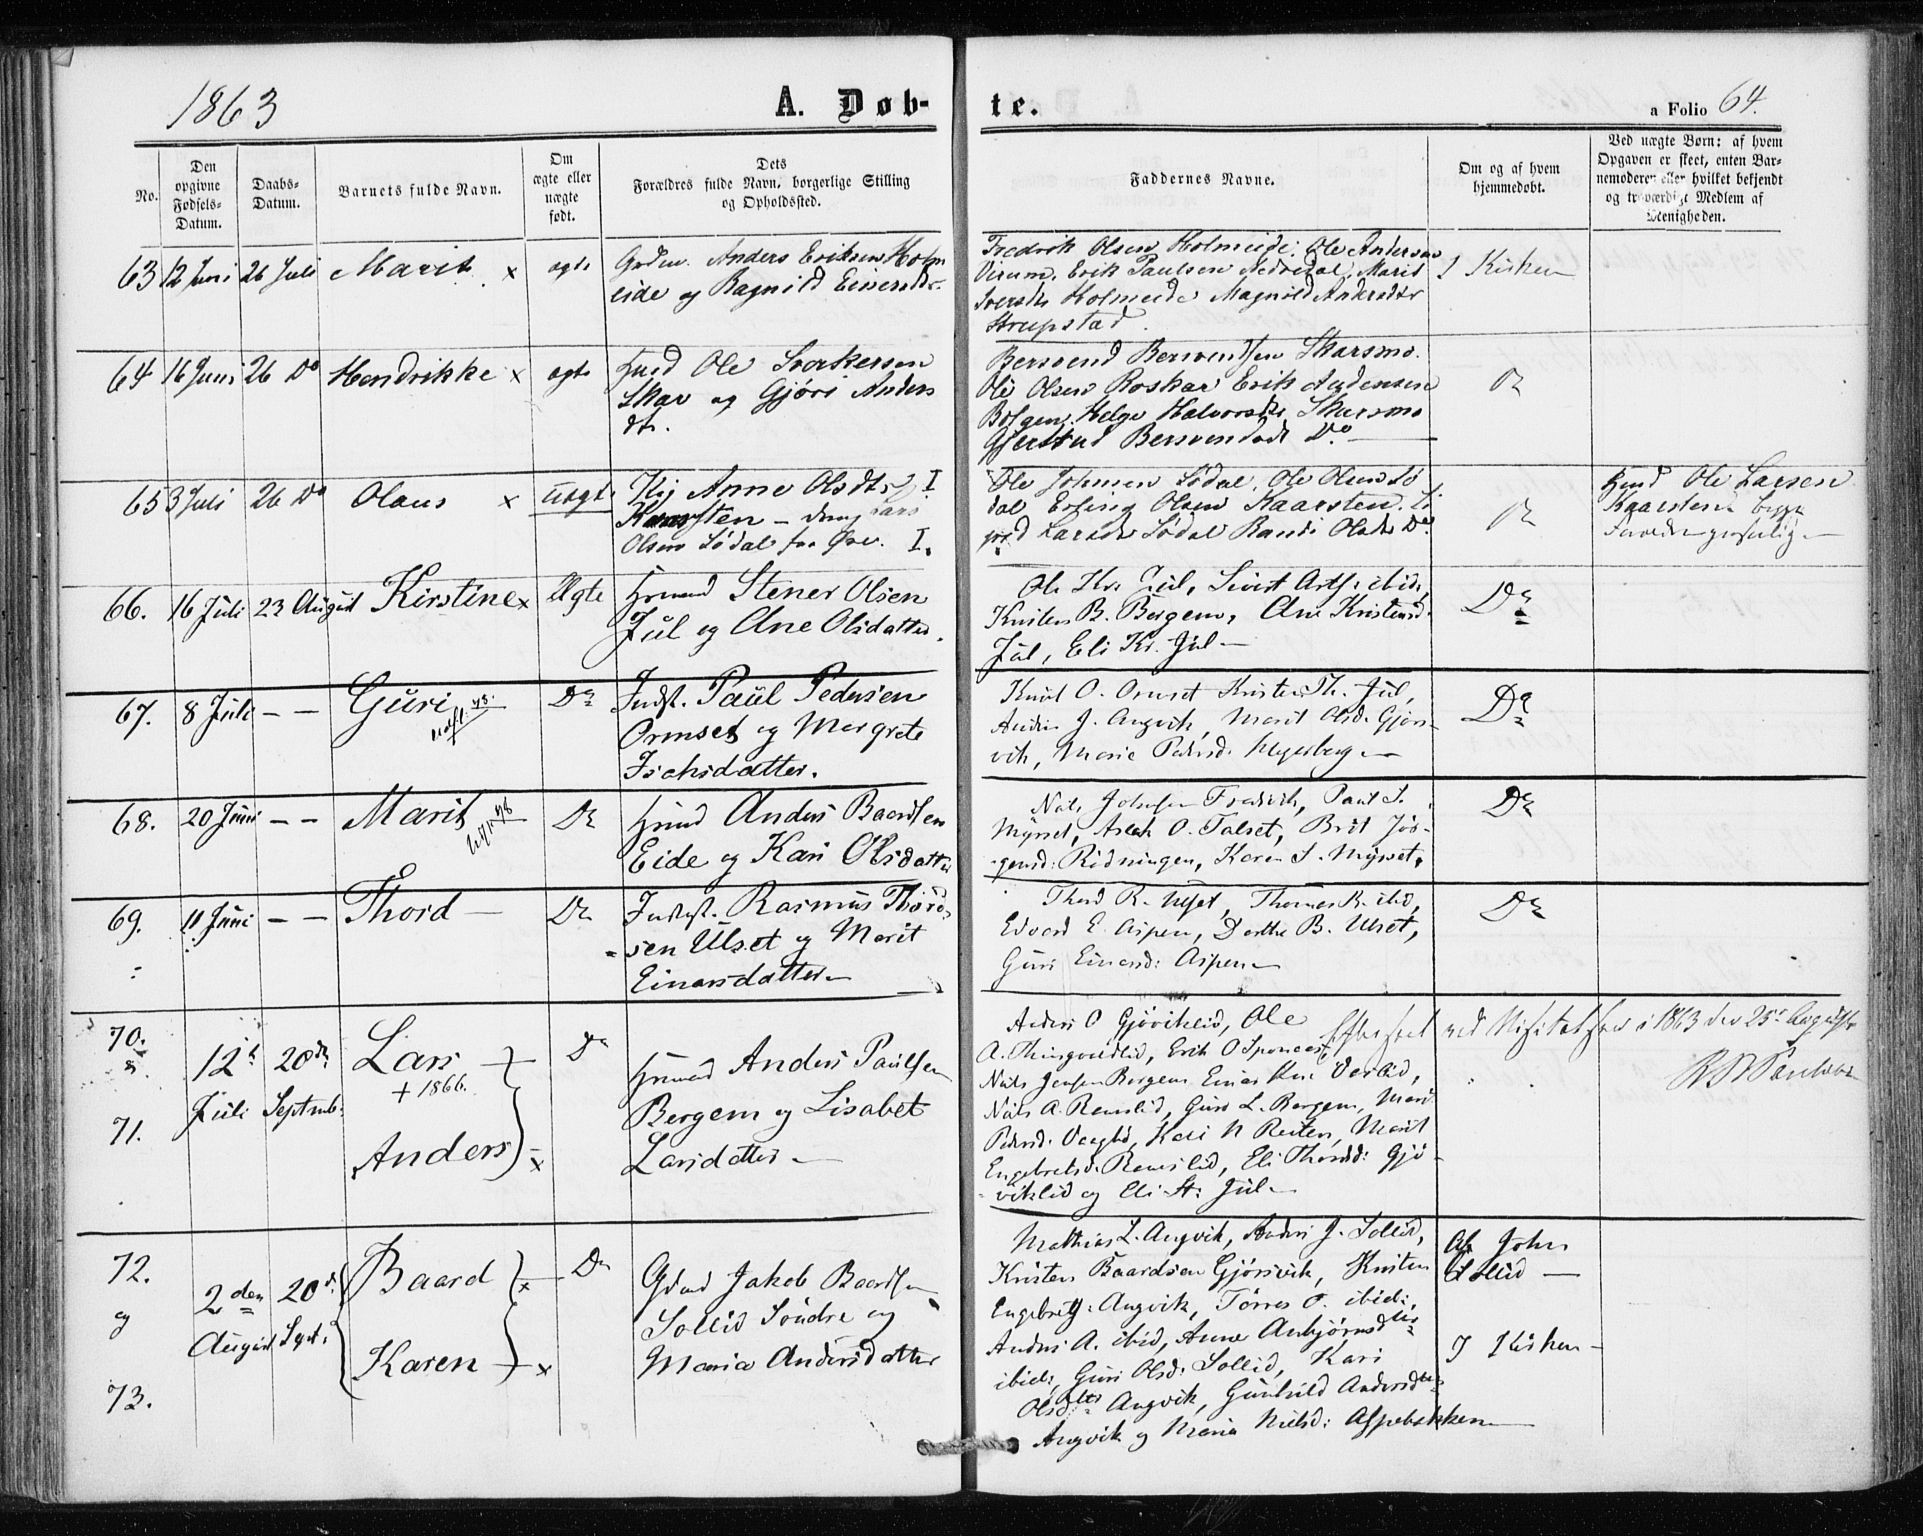 1863
A. Døb-
te.
a Folio 64.
No.
Den
opgivne
Fødsels-
Datum.
Daabs-
Datum.
Barnets fulde Navn.
Om
ægte eller
uægte
født.
Dets
Forældres fulde Navn, borgerlige Stilling
og Opholdssted.
Faddernes Navne.
Om og af hvem
hjemmedøbt.
Ved uægte Børn: af hvem
Opgaven er skeet, enten Bar-
nemoderen eller hvilket bekjendt
og troværdigt Medlem af
Menigheden.
63 12 Juni 26 Juli Marit x ægte
Anders Eriksen Holm
eide og Ragnild
Fredrik Olsen Holmeide. Ole Andersen
Virum. Erik Paulsen Nedredal, Marit
Iversdtr Holmeide Magnild Andersdtr
Strupstad.
I Kirken
64 16 Juni 26 Do Hendrikke x ægte
Ole Sverkersen
Skar og Gjøri Anders
dtr.
Bersvend Bersvendsen Skarsmo.
Ole Olsen Roskar Erik Andersen
Bolgen. Helge Halvorsdtr Skarsmo
Gjertrud Bersvendsdt Do
Do
65 3 Juli 26 Do Olaus x uægte
Pig Anne Olsdtr I
Kaarsten - Lars
Olsen Lødal for I.
Ole Johnsen Lødal. Ole Olsen Lø
dal Erling Olsen Kaarsten.
Larsdtr Lødal Randi Olsdtr Do
Do
Ole Larsen
Kaarsten. begge
66. 16 Juli 23 August Kirstine x Ægte
Hrmand Stener Olsen
Jul og Ane Olsdatter.
Ole Kr. Jul, Sivert ibid,
Kristen B. Bergem, Ane Kristensd.
Jul, Eli Kr. Jul -
Do
67. 8 Juli - - Guri Do
Indst. Paul Pedersen
Ormset og Margrete
Isaksdatter.
Knud O. Ormset Kristen Th. Jul,
Anders J. Angvik, Marit Olsd. Gjørs-
vik, Marie Pedersd. Meyerberg -
Do
68. 20 Juni - - Marit Do
Hrmd Anders Baardsen
Eide og Kari Olsdatter
Nils Johnsen Fredvik, Paul S.
Myrset, Aslak O. Talset, Brit Jør-
gensd: Ridningen, Karen S. Myrset.
Do
69. 11 Juni - - Thord - Do
Indst. Rasmus Thord-
sen Ulset og Marit
Einarsdatter -
Thord R. Ulset, Thomas R. ibid,
Edvard E. Aspen, Dorthe B. Ulset,
Guri Einarsd: Aspen -
Do
70.
&
71.
12t
Juli
20de
Septmb.
Lars
+ 1866.
Anders x
Do
Hrmand Anders Paulsen
Bergem og Lisabet
Larsdatter -
Anders O Gjøviklid, Ole
A. Thingvoldlid, Erik O
Nils Jensen Bergem Einar
Nils A. Remslid, Guri L. Bergem, Marit
Pedersd: Vaagbø, Kari N Reiten, Marit
Engebretsd. Remslid, Eli Thordsd: Gjø-
viklid og Eli St: Jul -
Efterseet ved Visitatsen i 1863 den 25de August
72.
og
73.
2den
August
20de
Sept.
Baard x
Karen x
Do
Gdmd Jakob Baardsen
Sollid Søndre og
Maria Andersdatter
Mathias L. Angvik, Anders J. Sollid,
Kristen Baardsen Gjørsvik, Kristen
Engebretss: Angvik, Tørres O. ibid:,
Anders A. ibid, Anne Anbjørnsdtr
ibid:, Guri Olsd: Sollid, Kari
Olsdtr Angvik, Gunhild Andersdtr
Angvik og Maria Nielsd: Aspebakken -
Af John
Sollid -
I Kirken -